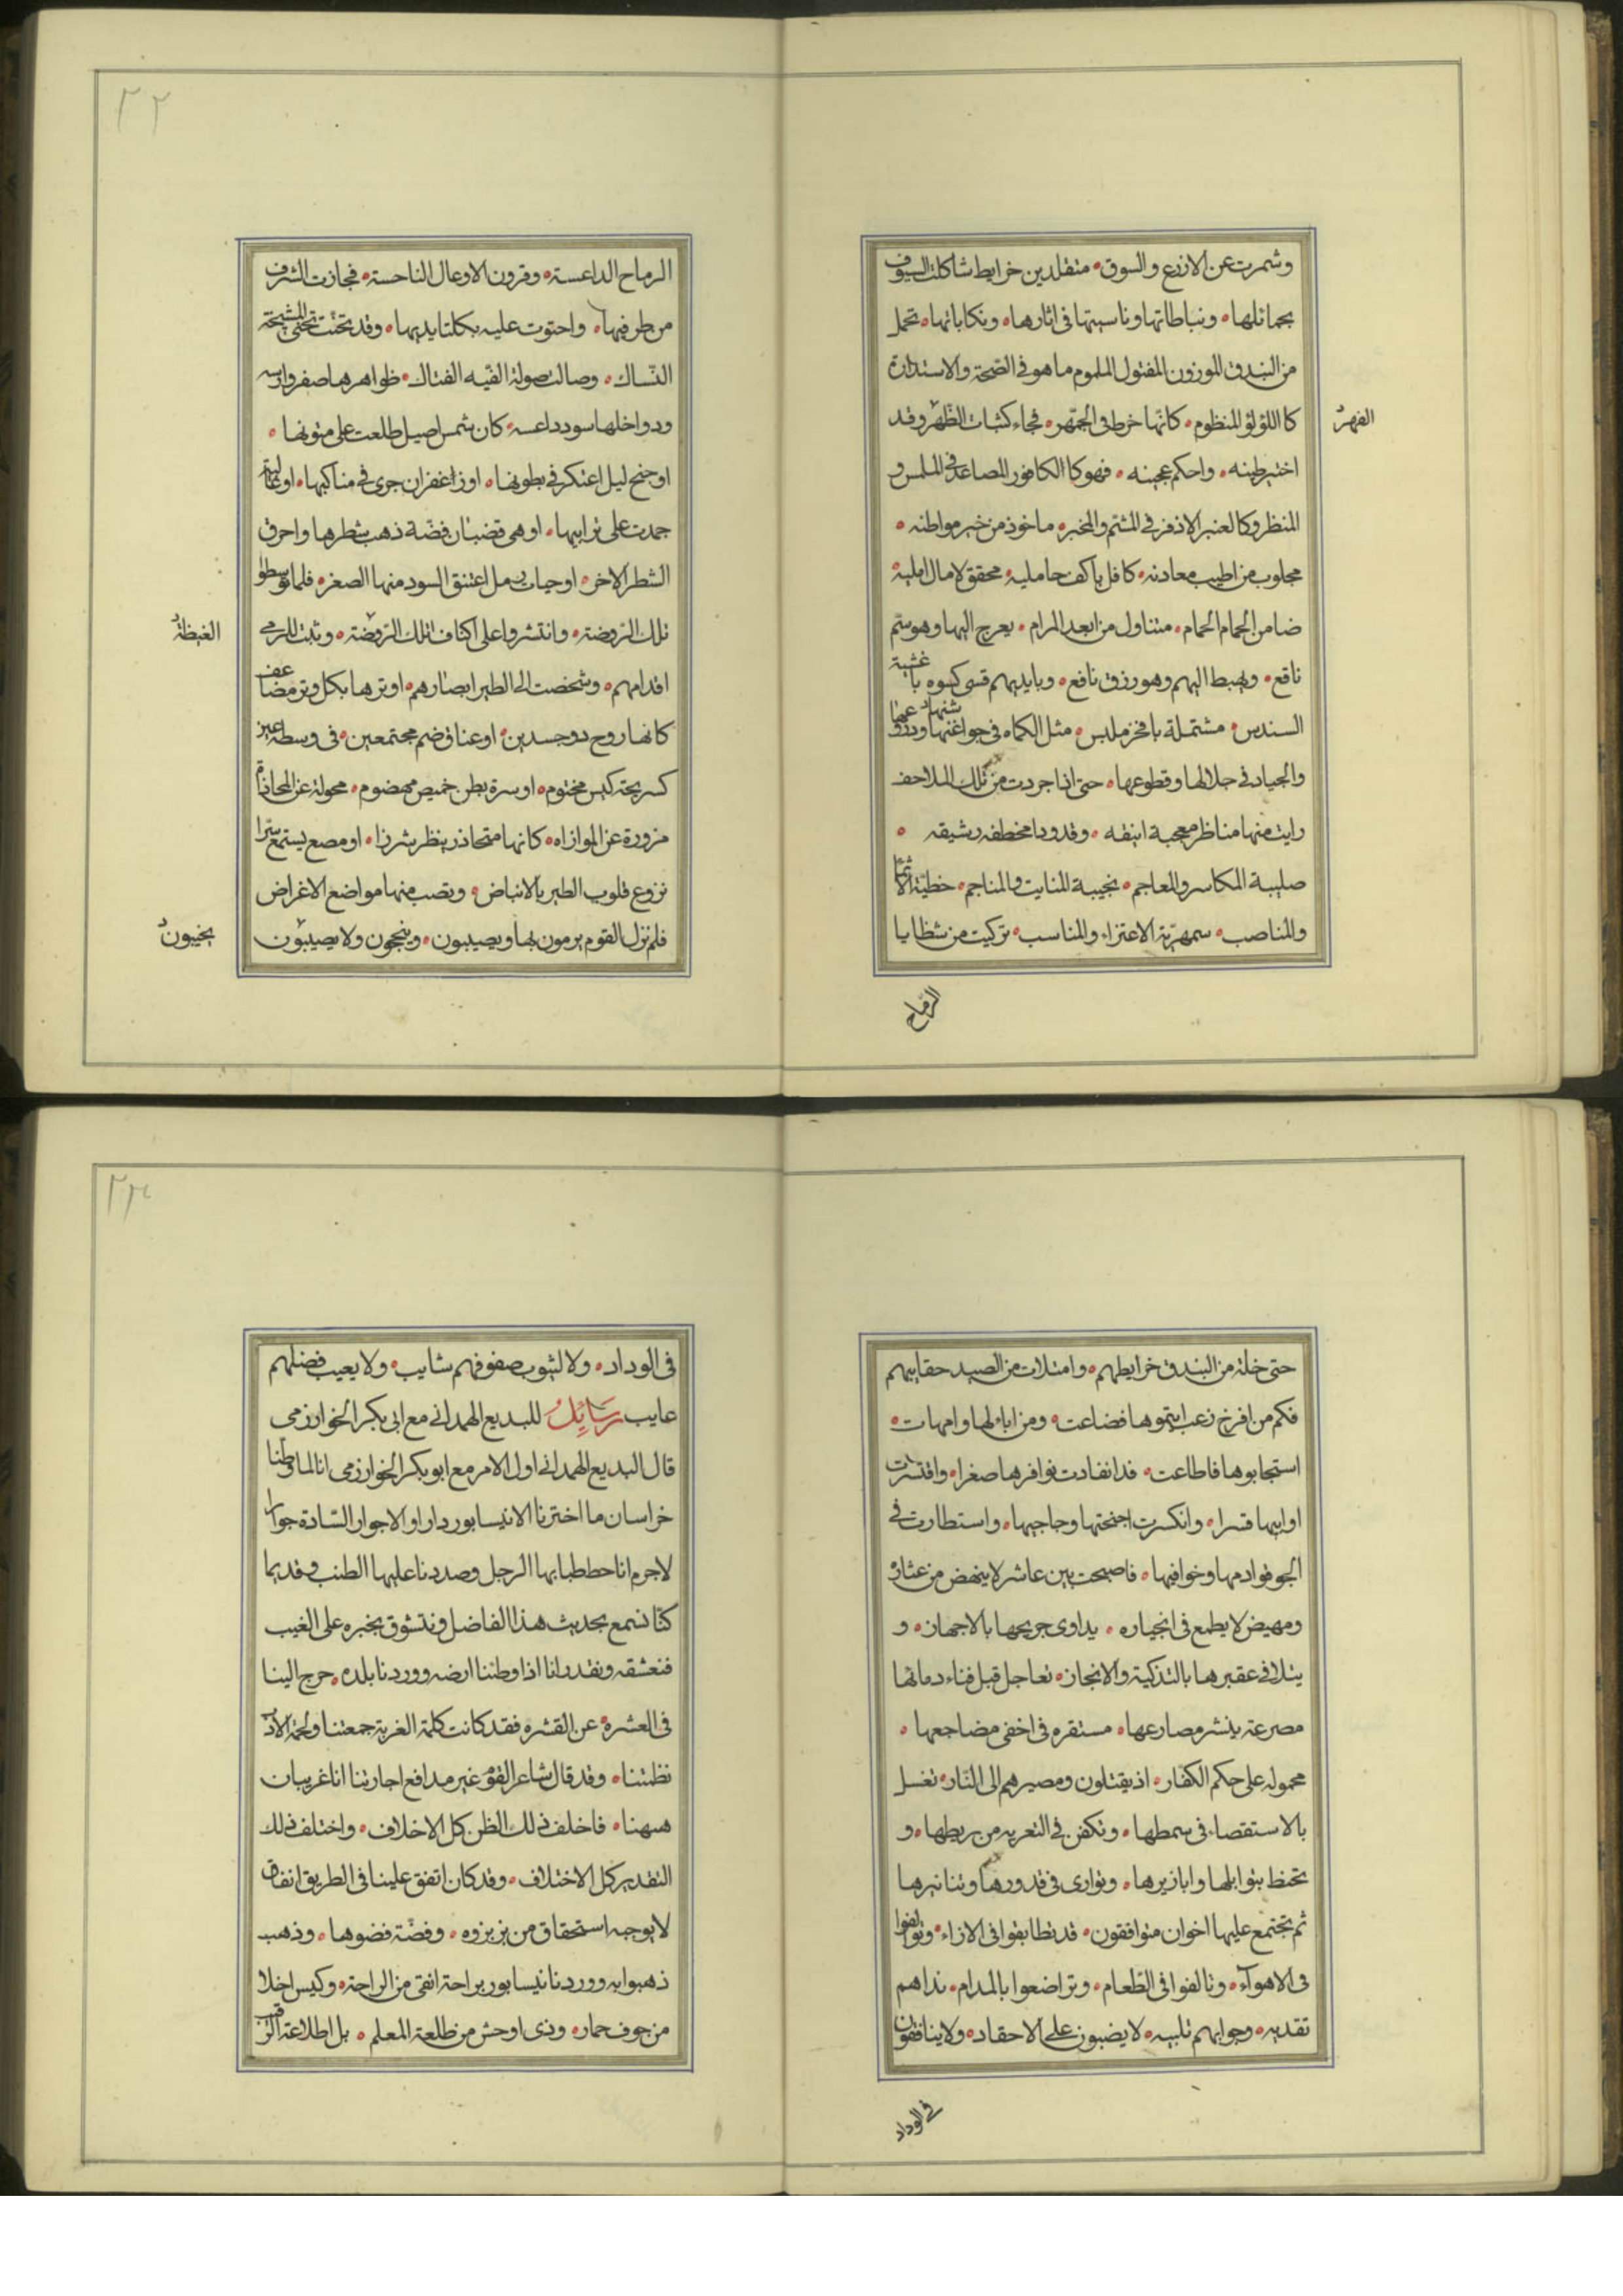 وشمرت عن الازرع والسوق۰ متقلدين خرايط شاكلت السيوف
بحمائلها۰ ونباطاتها وناسبتها فى اثارها۰ ونكاباتها۰ تحمل
من البندق الموزون المفتول الملموم ما هو فى الصحة والاستدارة
كا اللؤلؤ المنظوم۰ كانّها خرط فى الجمّهر۰ فجاء كثبات الظّهر وقد
الفهر
اختبر طينه۰ واحكم عجينه۰ فهو كا الكافور المصاعد فى الملمس و
المنظر وكا لعنبر الاذفر فى المشتم والمخبره ماخوذ من خير مواطنه۰
مجلوب من اطيب معادنه۰ كافل باكف حامليه۰ محقق لامال امليه۰
ضامن الحمام الحمام۰ متناول من ابعد المرام۰ يعرج اليها وهو سمّ
ناقع۰ ويهبط اليهم وهو رزق نافع۰ وبايديهم قسى كسوه با غشية
السندس۰ مشتملة بافخر ملبس۰ مثل الكماه فى جواغنها ودروعها
والجياد فى جلالها وقطوعها۰ حتى اذا جردت من تلك الملاحف
رايت منها مناظر معجبة انيقه۰ وقدودا مخطفه رشيقه۰
صليبة المكاسر والمعاجم۰ نجيبة المنايت والمناجم۰ خطيّة الاثما
والمناصب۰ سمهرّية الاعتزاء والمناسب۰ تركيت من شظايا
الرّماح
۲۲
الرماح الداعسة۰ وقرون الاوعال الناحسة۰ فجازت الشرف
من طرفيها۰ واحتوت عليه بكلتا يديها۰ وقد تحنّت تحنى المشيخة
النّساك۰ وصالت صولة الفتيه الفتاك۰ ظواهرها صفر وارسه
ودواخلها سود داعسه۰ كان شمس اصيل طلعت على متونها۰
او جنح ليل اعتكر فى بطونها۰ او زاغفران جرى فى مناكبها۰ او غالية
جمدت على ترابيها۰ او هى قضبان فضّة ذهب شطرها واحرق
الشطر الاخر۰ او حيات رمل اعتنق السود منها الصغر۰ فلما توسطوا
تلك الرّوضة۰ وانتشروا على اكناف تلك الرّوضة۰ وثبت للرمى
الغيظة
اقدامهم۰ وشخصت الى الطير ابصارهم۰ اوترها بكل وتر مضاعف
كانها روح دو جسدين۰ او عناق ضم مجتمعين۰ فى وسطه عين
كسر يحة كيس مختوم۰ او سرة بطن خميص مهضوم۰ محولة عن المحاذاة
مزورة عن الموازاه۰ كانها متحاذر ينظر شرزا۰ او مصع يستمع سّرا
نزوع قلوب الطير بالانباض۰ وبصب منها مواضع الاغراض
فلم نزل القوم يرمون بها ويصيبون۰ وينجحون ولا يصيبون
يخيبون
حتى خلة من البندق خرايطهم۰ وامتلات من الصيد حقايبهم
فكم من افرخ زغب ايتموها فضاعت۰ ومن اباء لها وامهات۰
استجابوها فاطاعت۰ قد انقادت نوافرها صغرا۰ واقتسرت
اوابيها قسرا۰ وانكسرت اجنحتها وحاجيها۰ واستطارت فى
الجو قوادمها وخوافيها۰ فاصبحت بين عاشر لا ينهض من عثاره
ومهيض لا يطمع فى انجياره۰ يداوى جريحها بالاجهان۰ و
يتلافى عقيرها بالتذكية والانجان۰ تعاجل قبل فناء دمائها
مصرعة بنشر مصارعها۰ مستقره فى اخفى مضاجعها۰
محموله على حكم الكفار۰ اذ يقتلون ومصيرهم الى النّار۰ تغسل
بالاستقصاء فى سمطها۰ وتكفن فى التعريه من ريطها۰ و
تحنظ بتوابلها وابازيرها۰ وتوارى فى قدورها وتنانيرها
ثم تجتمع عليها اخوان متوافقون۰ قد تطابقوا فى الازاء۰ وتوالفوا
فى الاهوآء۰ وتالفوا فى الطّعام۰ وتراضعوا بالمدام۰ نداهم
تقديه۰ وجوابهم تلبيه۰ لا يضبون على الاحقاد۰ ولا ينافقون
فى الوداد
۲۳
فى الوداد۰ ولا لشوب صفوفهم شايب۰ ولا يعيب فضلهم
عايب رَسَائِلُ للبديع الهمدانى مع ابى بكر الخوارزمى
قال البديع الهمدانى اول الامر مع ابو بكر الخوارزمى انا لما وطّنا
خراسان ما اخترنا الا نيسابور دار اولا جوار السّادة جوارا
لاجرم انا حططبا بها الرجل وصددنا عليها الطنب وقديما
كنّا نسمع بحديث هذا الفاضل ونتشوق بخبره على الغيب
فنعشقه ونقدر انا اذا وطننا ارضه ووردنا بلده۰ حرج الينا
فى العشره۰ عن القشره فقد كانت كلمة الغربة جمعتنا ولحمة الادب
نظمتنا۰ وقد قال شاعر القوم غير مدافع اجارتنا انا غريبان
ههنا۰ فاخلف ذلك الظن كل الاخلاف۰ واختلف ذلك
التقدير كل الاختلاف۰ وقد كان اتفق علينا فى الطريق انفاق
لا يوجبه استحقاق من بز بزوه۰ وفضّة فضوها۰ وذهب
ذهبوا به ووردنا نيسابور براحة انقى من الراحة۰ وكيس اخلا
من جوف حمار۰ وذى اوحش من طلعة المعلم۰ بل اطلاعة الرّقيب